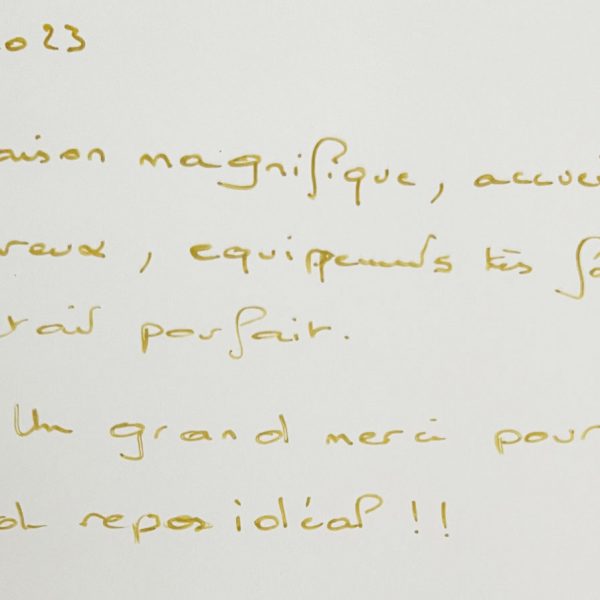 2023
aison magnifique, accuei
reux, equipements très fo
tait parfait.
Un grand merci pour
repos idéal !!